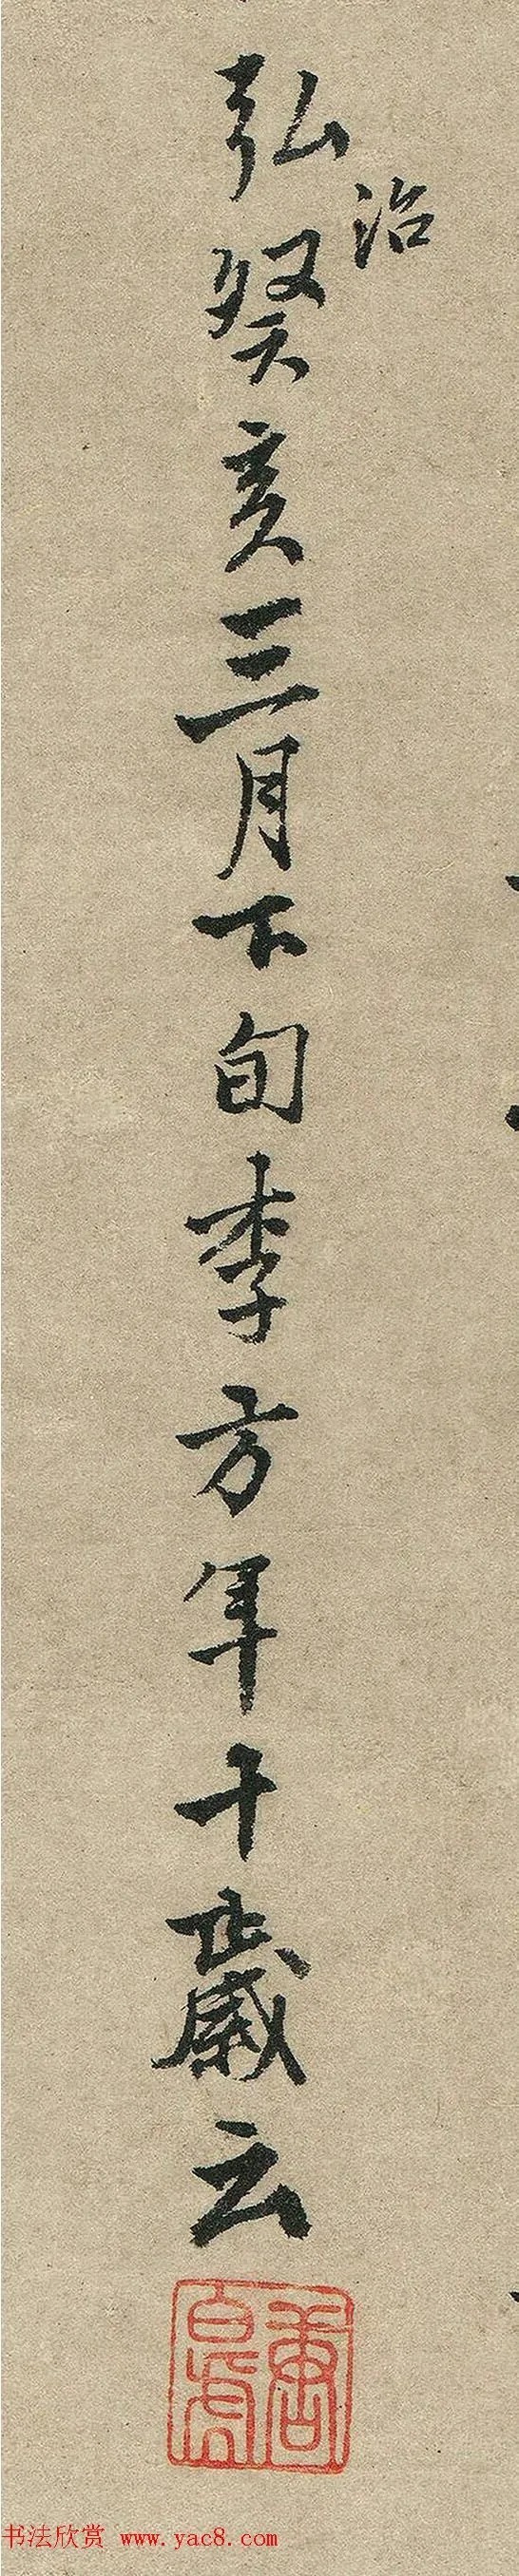 弘治癸亥三月下旬李方年十歲云
唐寅
书法欣赏 www.yac8.com